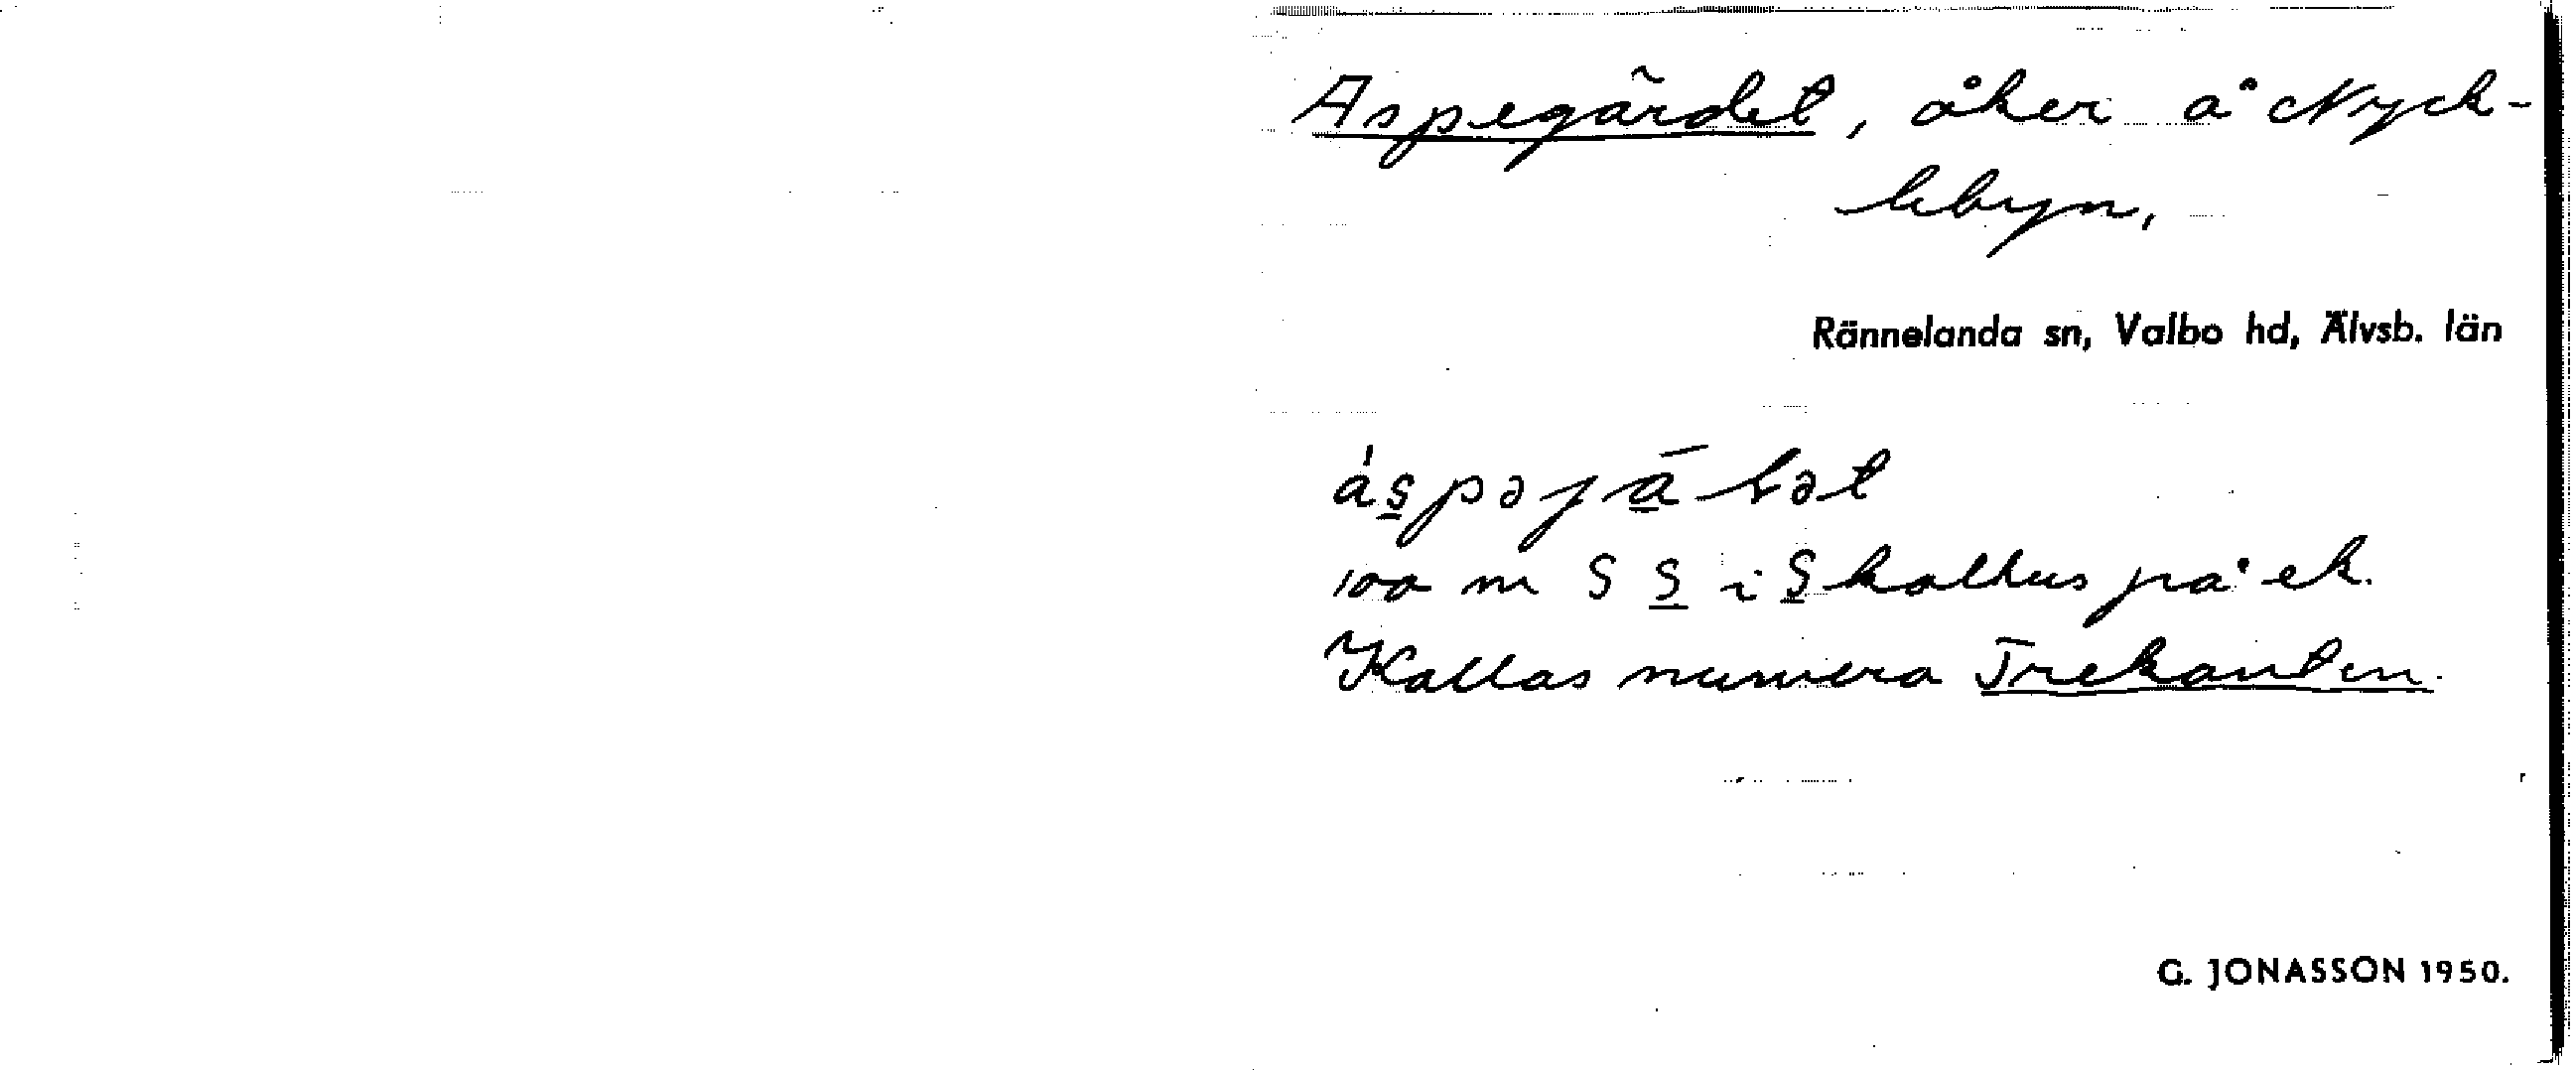 Aspegärdet, åker å Nyck-
lebyn,
Rännelanda sn, Valbo hd, Älvsb. län
100 m S S i Skolhus på ek.
Kallas numera Trekanten.
G. JONASSON 1950.